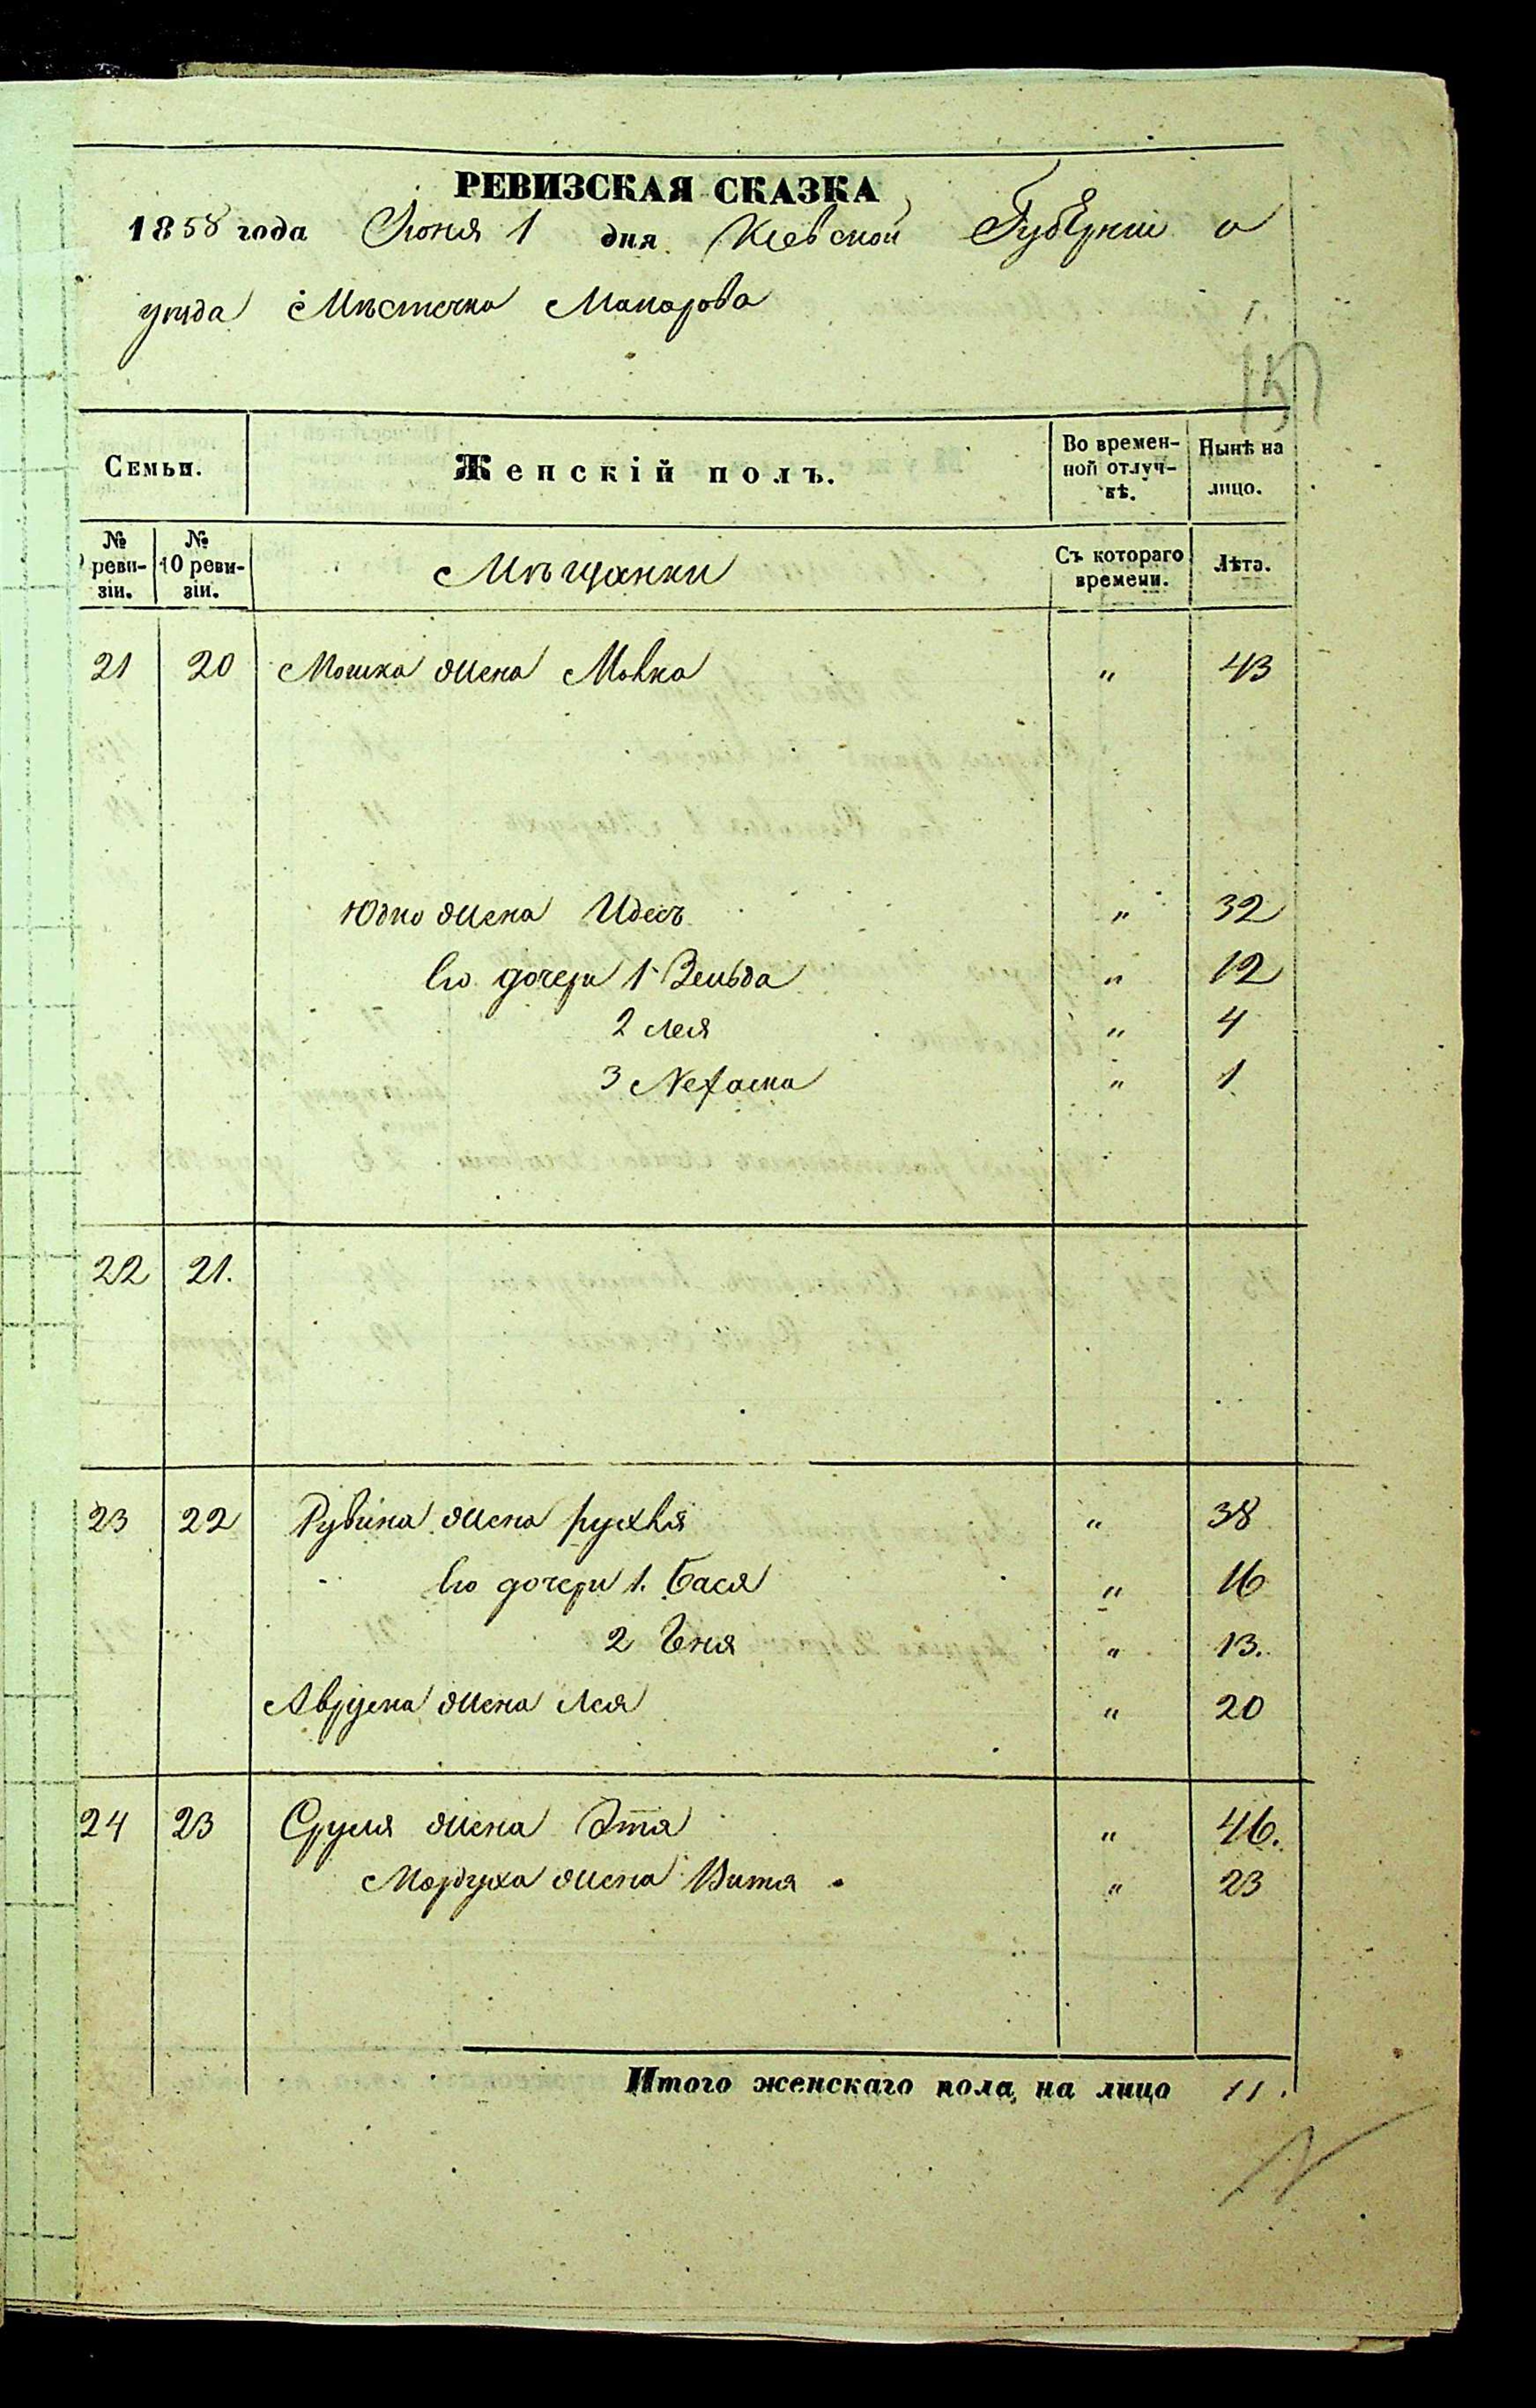 РЕВИЗСКАЯ СКАЗКА
1858 года Июня 1 дня Кіевской Губерніи и
уѣзда Мѣстечка Макарова
Семьи.
Женскій полъ.
Во времен-
ной отлуч-
кѣ.
Нынѣ на
лицо.
№
реви-
зіи.
№
10 реви-
зіи.
Мѣщанки
Съ котораго
времени.
Лѣта.
21 20 Мошка жена Мовка " 43
Юдко жена Идесъ " 32
Его дочери 1 Зельда " 12
2 Лея " 4
3 Нехама " 1
22 21.
23 22 Рувина жена Рухля " 38
Его дочери 1. Бася " 16
2 Геня " 13.
Аврума жена Лея " 20
24 23 Сруля жена Эта " 46.
Мордуха жена Витя " 23
Итого женскаго пола на лицо 11.